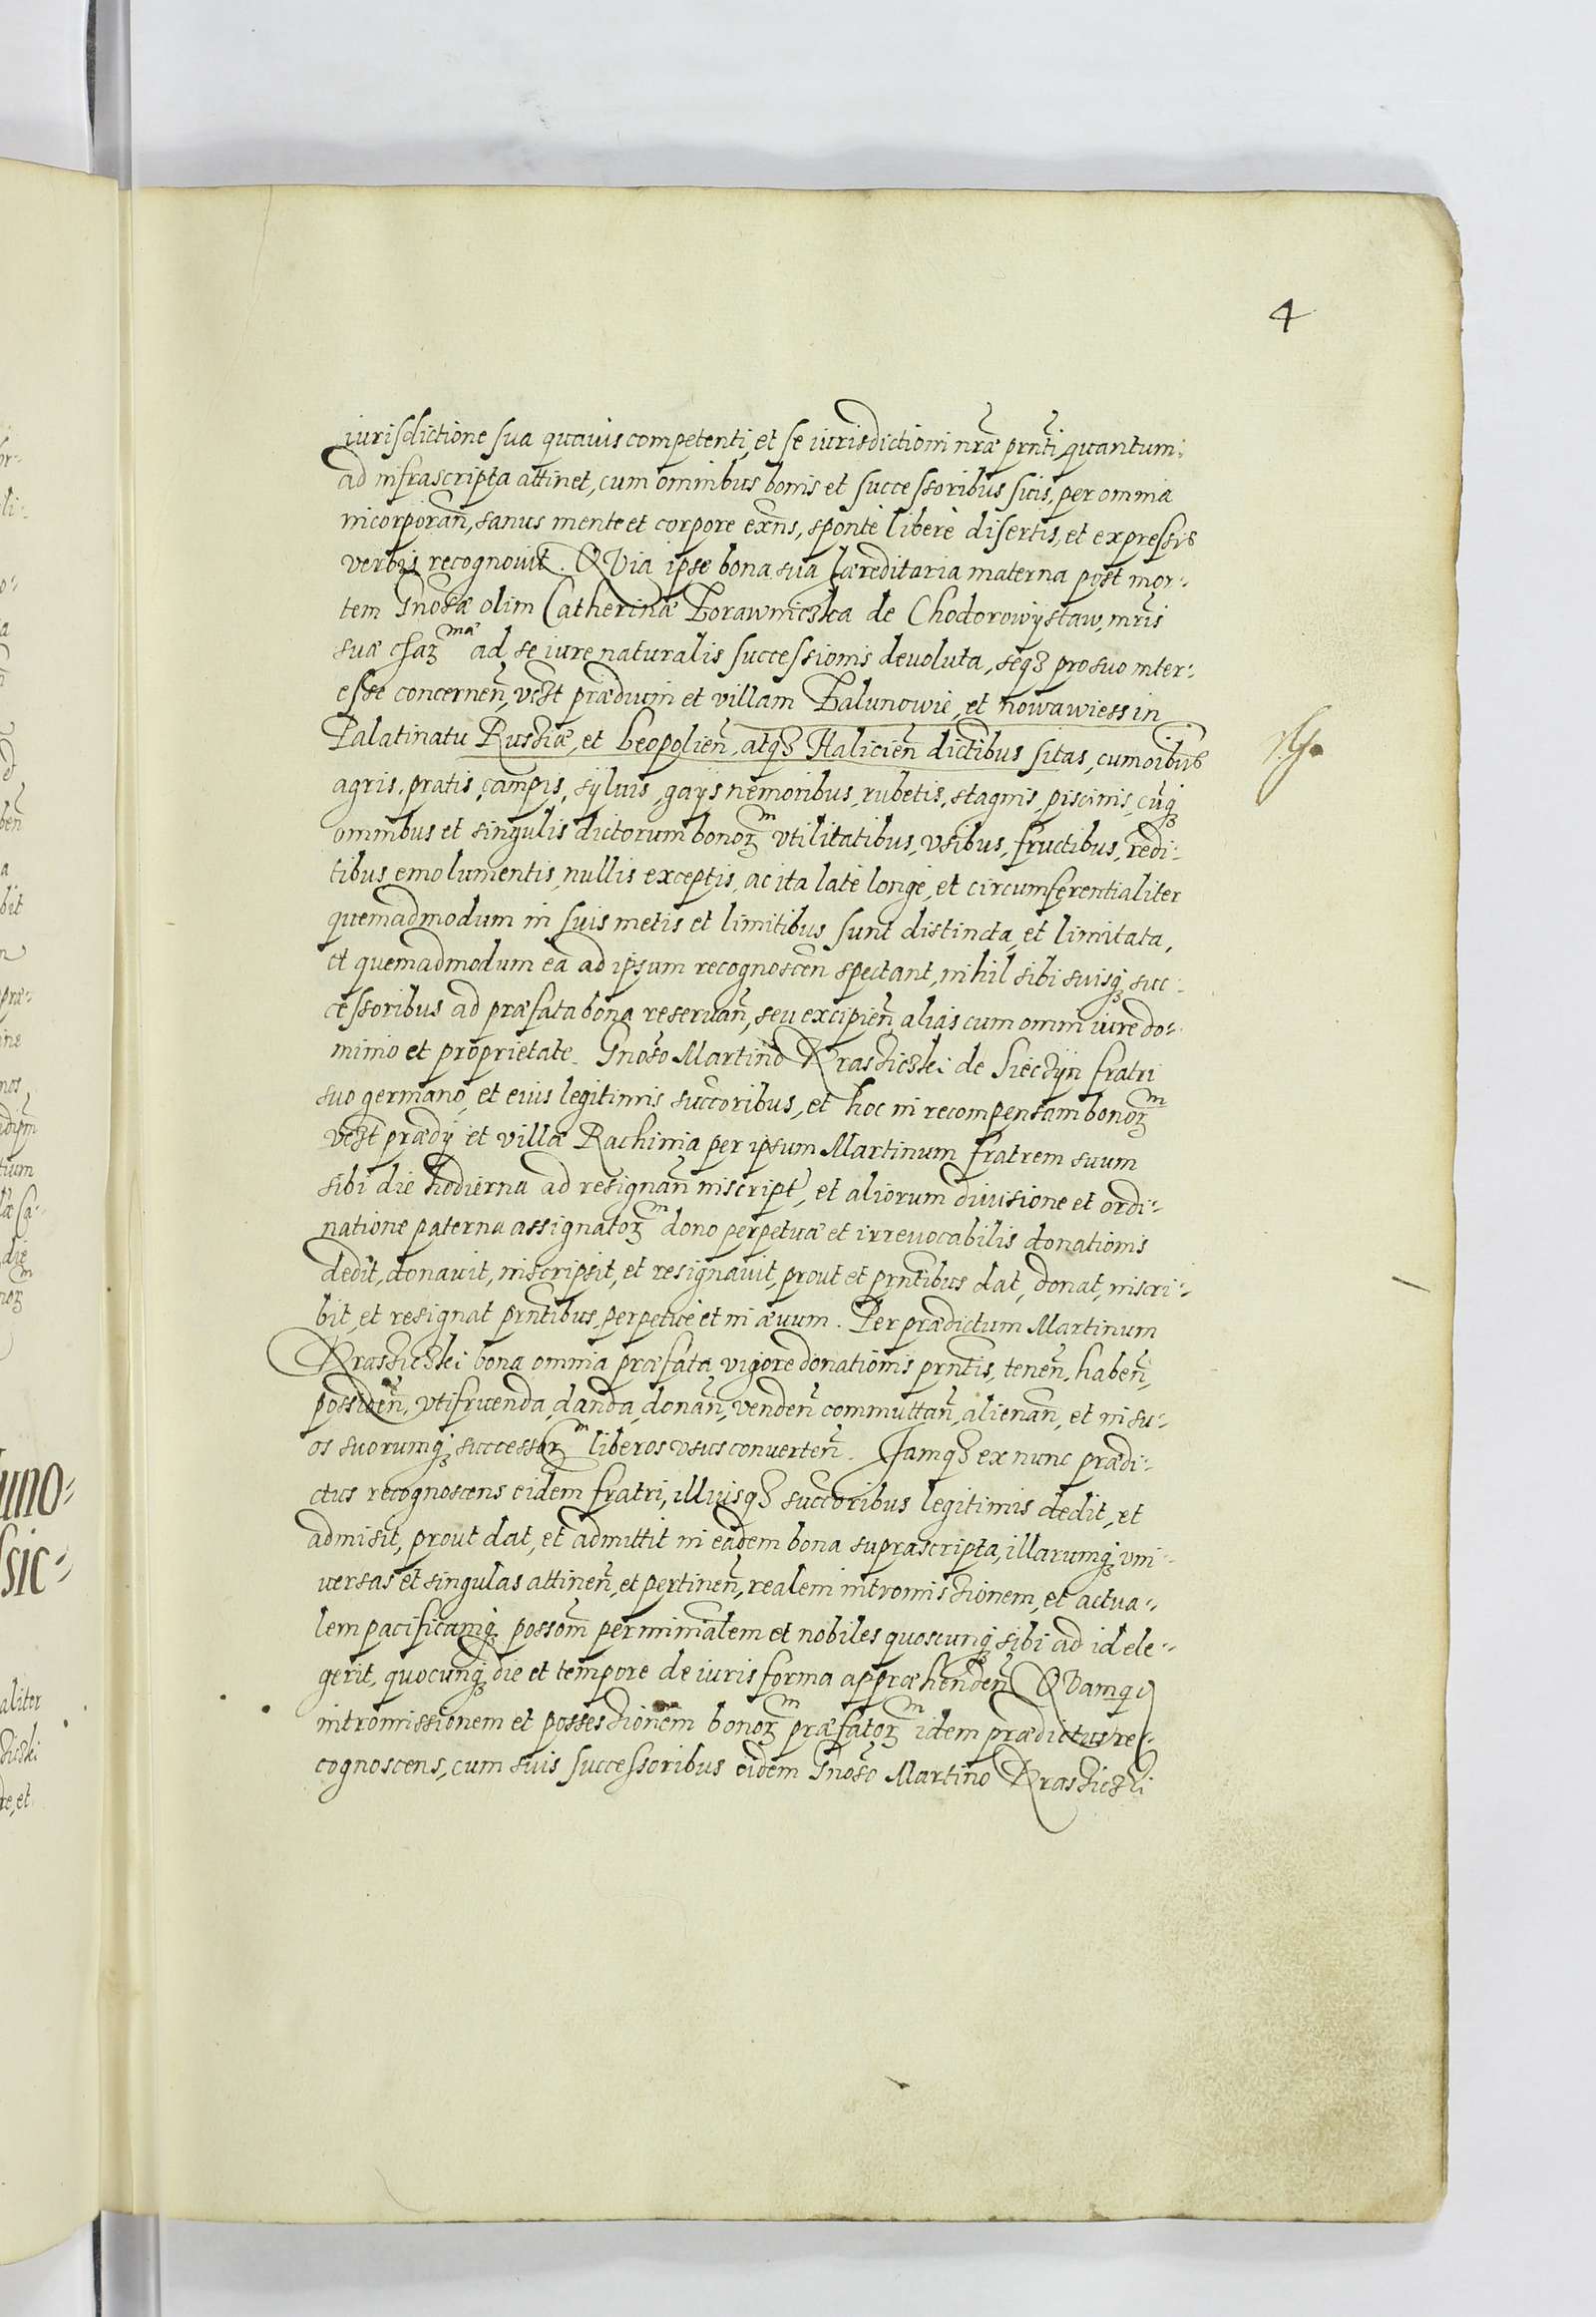 4
iurisdictione sua quauis competenti, et se iurisdictioni nr̃æ prñti, quantum
ad infrascripta attinet, cum omnibus bonis et successoribus suis, per omnia
incorporañ, sanus mente et corpore exñs, sponte libere disertis, et expressis
verbis recognouit. QVia ipse bona sua hæreditaria materna post mor-
tem Gnosæ olim Catherinæ Zorawniczka de Chodorowystaw, mr̃is
suæ chaꝝ mæ ad se iure naturalis successionis devoluta, seqꝫ pro suo inter-
esse concerneñ, vczt prædium et villam Zalunowie, et nowawiess in
Palatinatu Russiæ, et Leopolieñ, atqꝫ Halicieñ dictibus sitas, cum oibus
agris, pratis, campis, syluis, gaijs nemoribus, rubetis, stagnis, piscinis, cũqꝫ
omnibus et singulis dictorum bonoꝝm vtilitatibus, vsibus, fructibus, redi-
tibus, emolumentis, nullis exceptis, ac ita late longe, et circumferentialiter
quemadmodum in suis metis et limitibus sunt distincta, et limitata,
et quemadmodum ea ad ipsum recognosceñ spectant, nihil sibi suisqꝫ suc-
cessoribus ad præfata bona reseruañ, seu excipieñ alias cum omni iure do-
minio et proprietate. Gnoso Martino Krasziczki de Sieczyn fratri
suo germano, et eius legitimis succoribus, et hoc in recompensam bonoꝝm
vczt prædij et villæ Rachinia per ipsum Martinum fratrem suum
sibi die hodierna ad resignañ inscript, et aliorum diuisione et ordi-
natione paterna assignatoꝝm dono perpetuæ et irreuocabilis donationis
dedit, donauit, inscripsit, et resignauit, prout et prñtibus dat, donat, inscri-
bit, et resignat prñtibus, perpetue et in æuum. Per prædictum Martinum
Krasziczki bona omnia præfata vigore donationis prñtis, teneñ, habeñ,
possideñ, vtifruenda, danda, donañ, vendeñ commuttañ, alienañ, et in su-
os suorumqꝫ successoꝝm liberos vsus conuerteñ. Jamqꝫ ex nunc prædi-
ctus recognoscens eidem fratri, illiusqꝫ succoribus legitimis dedit, et
admisit, prout dat, et admittit in eadem bona suprascripta, illarumqꝫ vni-
uersas et singulas attineñ, et pertineñ, realem intromissionem, et actua-
lem pacificamqꝫ possom̃ per minialem et nobiles quoscunqꝫ sibi ad id ele-
gerit, quocunqꝫ die et tempore de iuris forma appræhendeñ QVamqꝫ
intromissionem et possessionem bonoꝝm præfatoꝝm idem prædictus re-
cognoscens, cum suis successoribus eidem Gnoso Martino Krasziczki